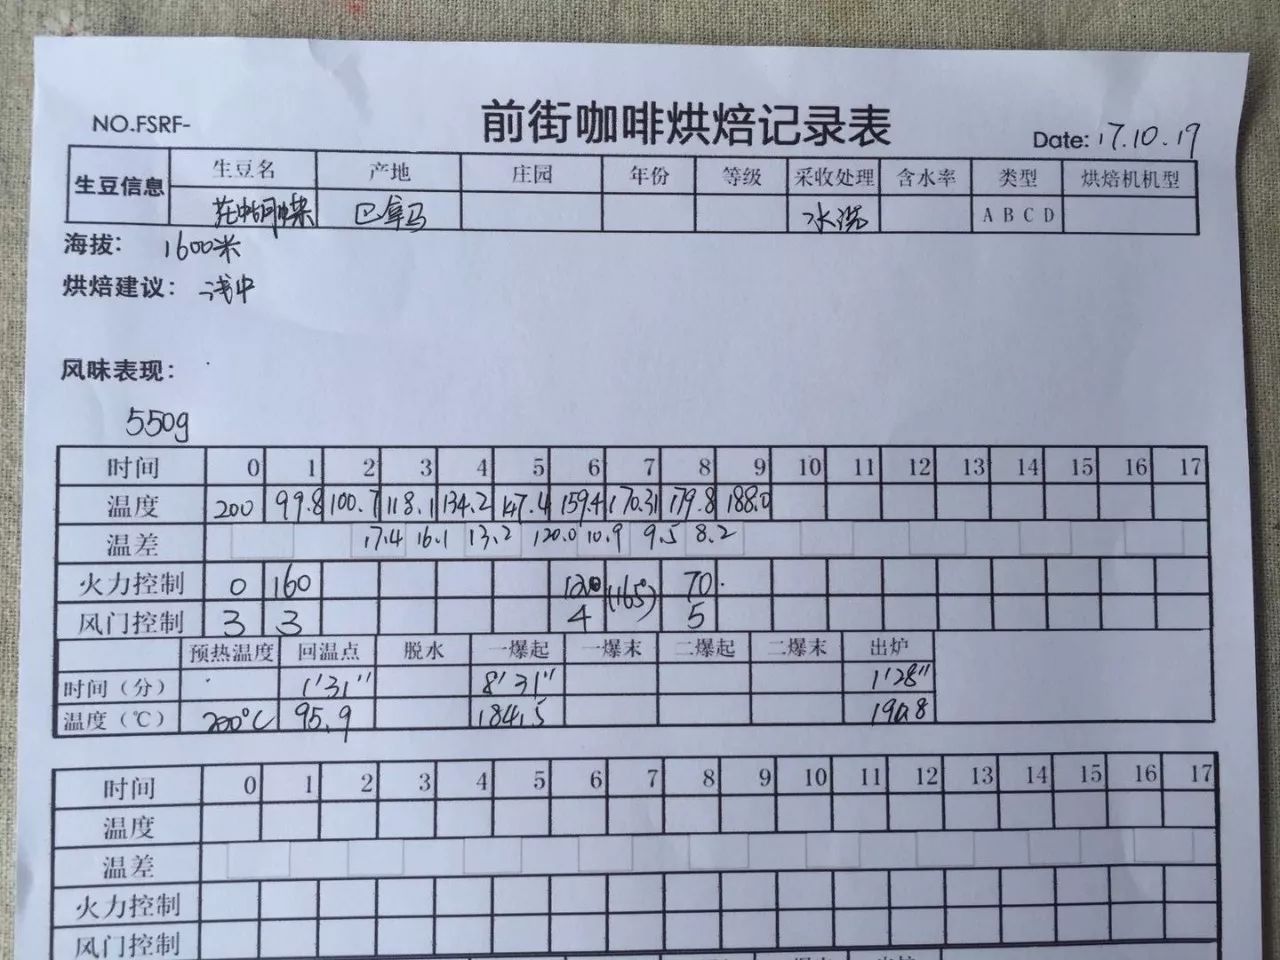 NO.FSRF- 前街咖啡烘焙记录表 Date: 17.10.19
生豆信息 生豆名 产地 庄园 年份 等级 采收处理 含水率 类型 烘焙机机型
花蝴蝶 巴拿马 水洗 A B C D
海拔: 1600米
烘焙建议: 浅中
风味表现:
550g
时间 0 1 2 3 4 5 6 7 8 9 10 11 12 13 14 15 16 17
温度 200 99.8 100.7 118.1 134.2 147.4 159.4 170.31 179.8 188.0
温差 17.4 16.1 13.2 120.0 10.9 9.5 8.2
火力控制 0 160 120 (165°) 70.
风门控制 3 3 4 5
预热温度 回温点 脱水 一爆起 一爆末 二爆起 二爆末 出炉
时间（分） 1'31" 8'31" 1'28"
温度（℃） 200°C 95.9 184.5 190.8
时间 0 1 2 3 4 5 6 7 8 9 10 11 12 13 14 15 16 17
温度
温差
火力控制
风门控制